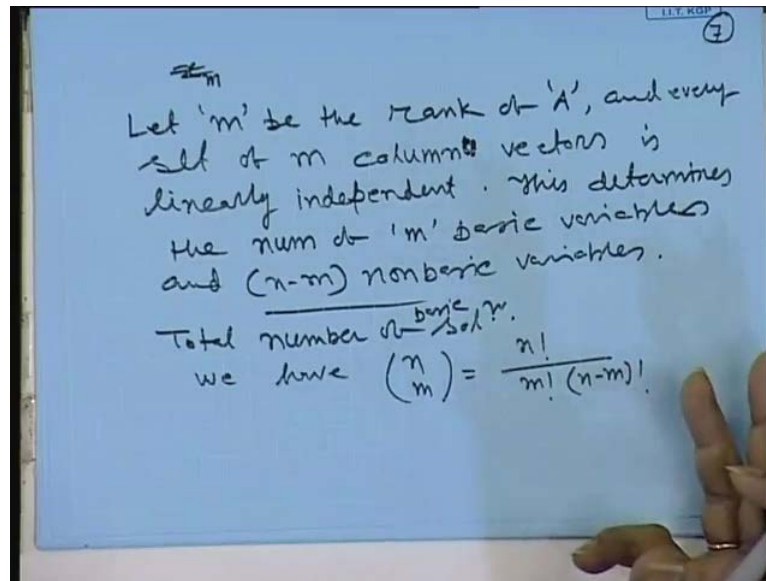 I.I.T. KGP
7
Let 'm' be the rank of 'A', and every
set of m column vectors is
linearly independent. This determines
the num of 'm' basic variables
and (n-m) nonbasic variables.
Total number of basic solⁿ.
we have (n m) = n! / m! (n-m)!